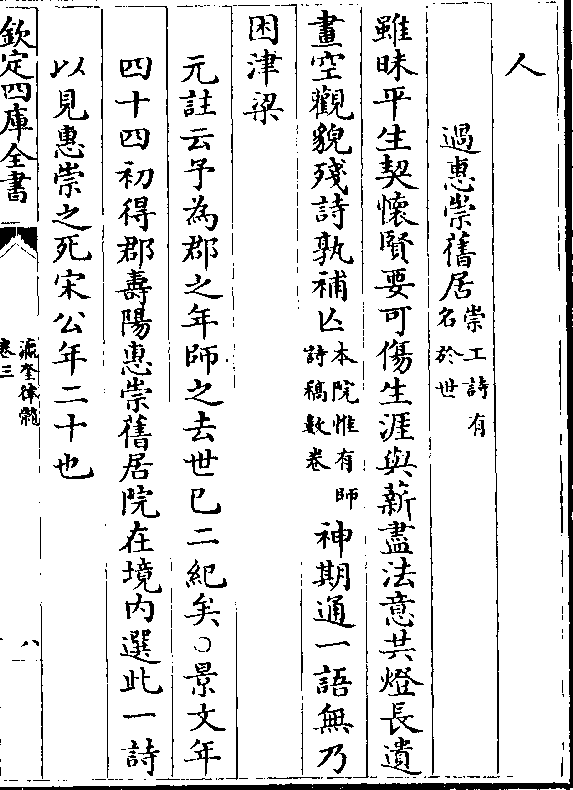 人
過惠崇舊居崇工詩有名於世
雖昧平生契懷賢要可傷生涯與薪盡法意共燈長遺
畫空觀貌殘詩孰補亾本院惟有師詩稿數卷神期通一語無乃
困津梁
元註云予為郡之年師之去世已二紀矣○景文年
四十四初得郡壽陽惠崇舊居院在境内選此一詩
以見惠崇之死宋公年二十也
欽定四庫全書
瀛奎律髓
卷三
八